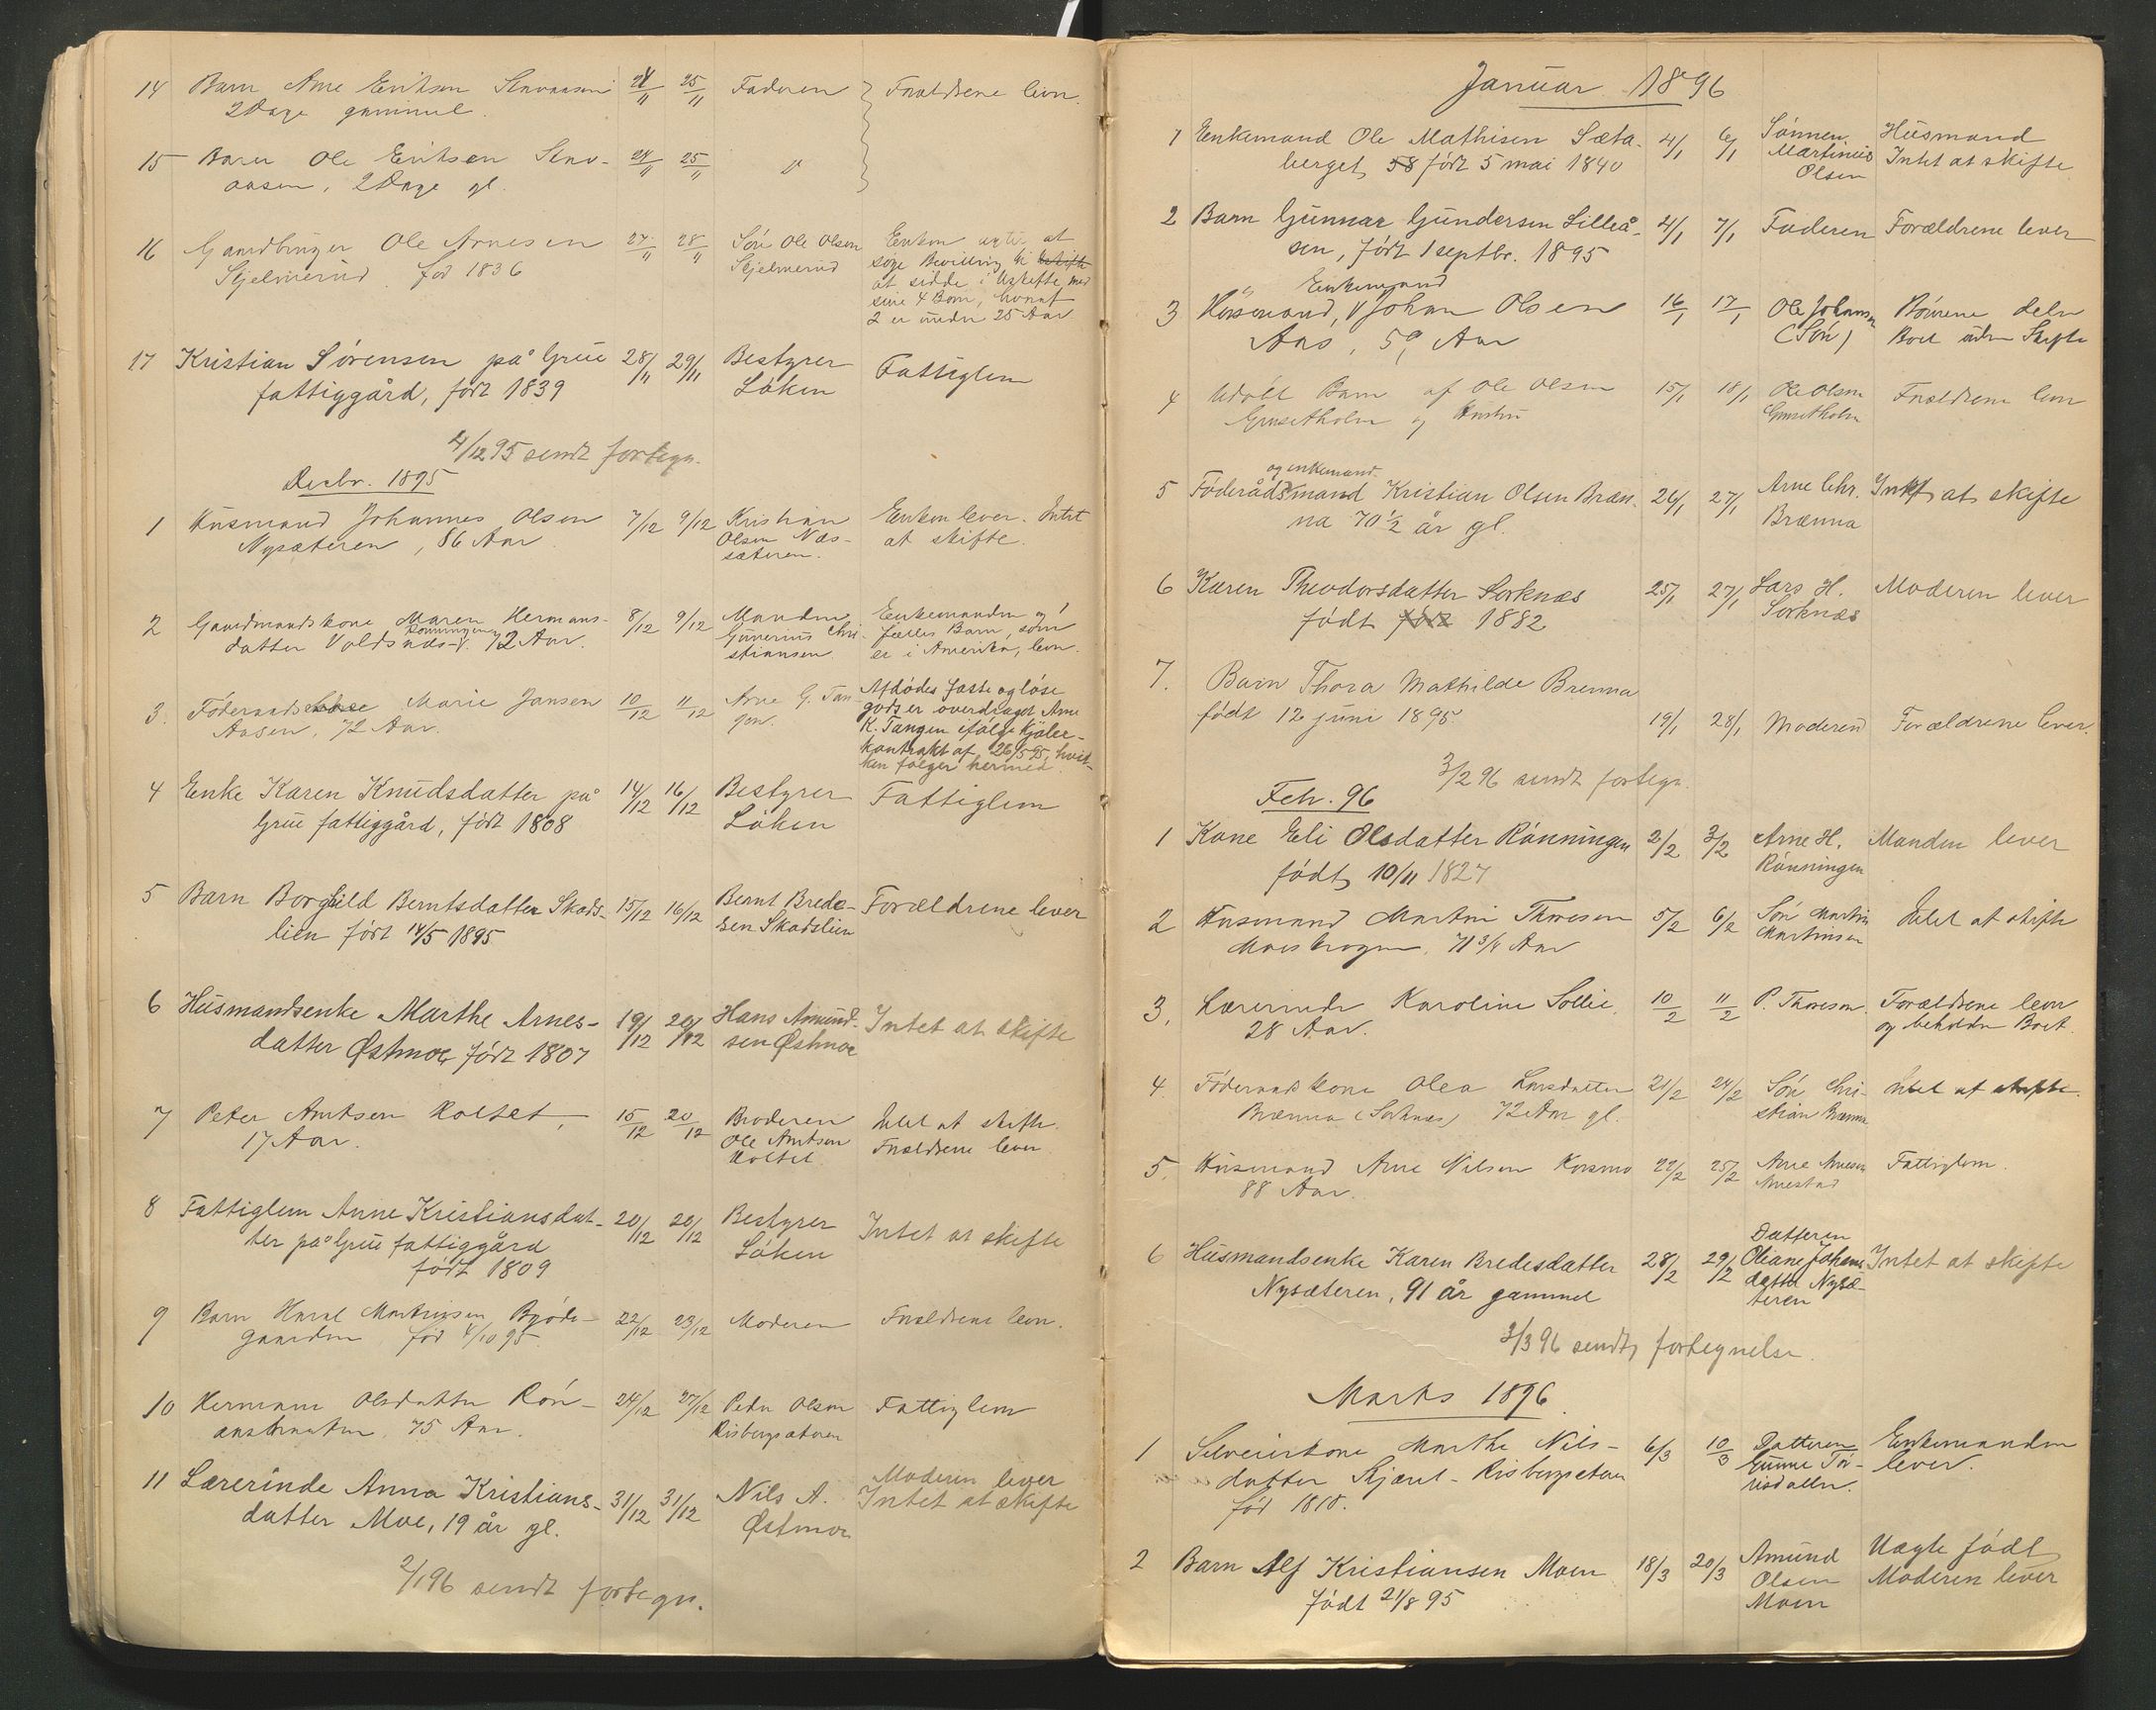 14 Barn Arne Eriksen Skavaasen 24/11 25/11 Faderen Forældrene lever.
2 Dage gammel.
15 Barn Ole Eriksen Skav- 24/11 25/11 "
aasen, 2 Dage gl.
16 Gaardbruger Ole Arnesen 27/11 28/11 Søn Ole Olsen Enken agter at
Skjelmerud. fød 1836 Skjelmerud søge Bevilling til
at sidde i Uskifte med
sine 4 Børn, hvoraf
2 er under 25 Aar
17 Kristian Sørensen på Grue 28/11 29/11 Bestyrer Fattiglem
fattiggård, født 1839 Løken
4/12 95 sendt fortegn.
Decbr. 1895
1 Husmand Johannes Olsen 7/12 9/12 Kristian Enken lever. Intet
Nysæteren, 86 Aar Olsen Næs- at skifte.
sæteren.
2 Gaardmandskone Maren Hermans- 8/12 9/12 Manden Enkemanden og
datter Voldsnæs- Rønningen 72 Aar. Gunerius Chri- fælles Barn, som
stiansen er i Amerika, lever.
3. Føderaads Marie Jansen 10/12 11/12 Arne G. Tan- Afdødes faste og løse
Aasen, 72 Aar. gen. gods er overdraget Arne
K. Tangen ifølge Kjøbe-
kontrakt af 26/5 95, hvil-
ken følger hermed.
4 Enke Karen Knudsdatter på 14/12 16/12 Bestyrer Fattiglem
Grue fattiggård, født 1808 Løken
5 Barn Borghild Berntsdatter Skads- 15/12 16/12 Bernt Brede- Forældrene lever
lien født 14/5 1895 sen Skadslien
6 Husmandsenke Marthe Arnes- 19/12 20/12 Hans Amund- Intet at skifte
datter Østmoe født 1807 sen Østmoe
7 Peter Amtsen Koltet, 15/12 20/12 Broderen Intet at skifte.
17 Aar. Ole Amtsen Forældrene lever
Koltet
8 Fattiglem Anne Kristiansdat- 20/12 20/12 Bestyrer Intet at skifte
ter på Grue fattiggård Løken
født 1809
9 Barn Haral Martinsen Bysde- 22/12 23/12 Moderen Forældrene lever.
gaarden fød 4/10 95.
10 Hermane Olsdatter Røn- 24/12 27/12 Peder Olsen Fattiglem
75 Aar. Risbergsæteren
11 Lærerinde Anna Kristians- 31/12 31/12 Nils A. Moderen lever
datter Moe, 19 år gl. Østmoe Intet at skifte
2/1 96 sendt fortegn.
Januar 1896
1 Enkemand Ole Mathisen Sæta- 4/1 6/1 Sønnen Husmand
berget, 58 født 5 mai 1840 Martinus Intet at skifte
Olsen
2 Barn Gunnar Gundersen Lilleå- 4/1 7/1 Faderen Forældrene lever
sen, født 1 septbr. 1895
Enkemand
3 Husmand, V Johan Olsen 16/1 17/1 Ole Johansen Børnene deler
Aas, 59 Aar (Søn) Boet uden Skifte
4 Udøbt Barn af Ole Olsen 15/1 18/1 Ole Olsen Forældrene lever
Grusetholm og Hustru Grusetholm
og enkemand
5 Føderådsmand Kristian Olsen Bræn- 26/1 27/1 Arne Chr. Intet at skifte
na 70 1/2 år gl. Brænna
6 Karen Theodorsdatter Sorknæs 25/1 27/1 Lars H. Moderen lever
født født 1882 Sorknæs
7. Barn Thora Mathilde Brenna
født 12 juni 1895 19/1 28/1 Moderen Forældrene lever.
3/2 96 sendt fortegn.
Febr. 96
1 Kone Eli Olsdatter Rønningen 2/2 3/2 Arne H. Manden lever
født 10/11 1827 Rønningen
2 Husmand Martin Thoresen 5/2 6/2 Søn Martin Intet at skifte
71 3/4 Aar Martinsen
3. Lærerinde Karoline Sollie, 10/2 11/2 P. Thoresen. Forældrene lever
28 Aar. og beholder Boet.
4. Føderaadskone Olea Larsdatter 21/2 24/2 Søn Chri- Intet at skifte.
Brænna (Sorknæs) 72 Aar gl. stian Brænna
5. Husmand Arne Nilsen Korsmo 22/2 25/2 Arne Arnesen Fattiglem.
88 Aar.
Datteren
6 Husmandsenke Karen Bredesdatter 28/2 29/2 Oliane Johans Intet at skifte
Nysæteren, 91 år gammel datter Nysæ-
teren
3/3 96 sendt fortegnelse.
Marts 1896
1 Selveierkone Marthe Nils- 6/3 10/3 Datteren Enkemanden
datter Skjæret - Risbergseteren lever.
fød 1818.
2 Barn Alf Kristiansen Moen 18/3 20/3 Amund Uægte født
født 21/8 95 Olsen Moderen lever
Moen